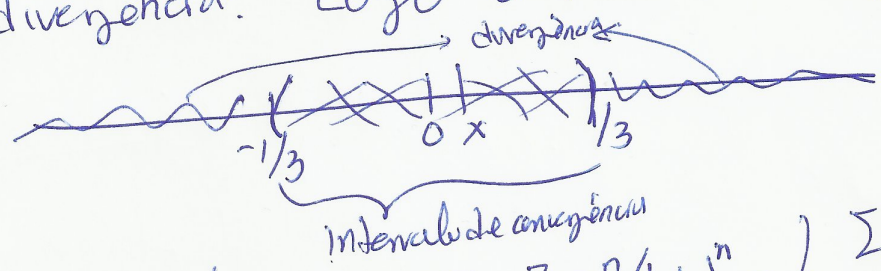 divergência. Logo
divergência
-1/3 0 x 1/3
intervalo de convergência
n ) Σ